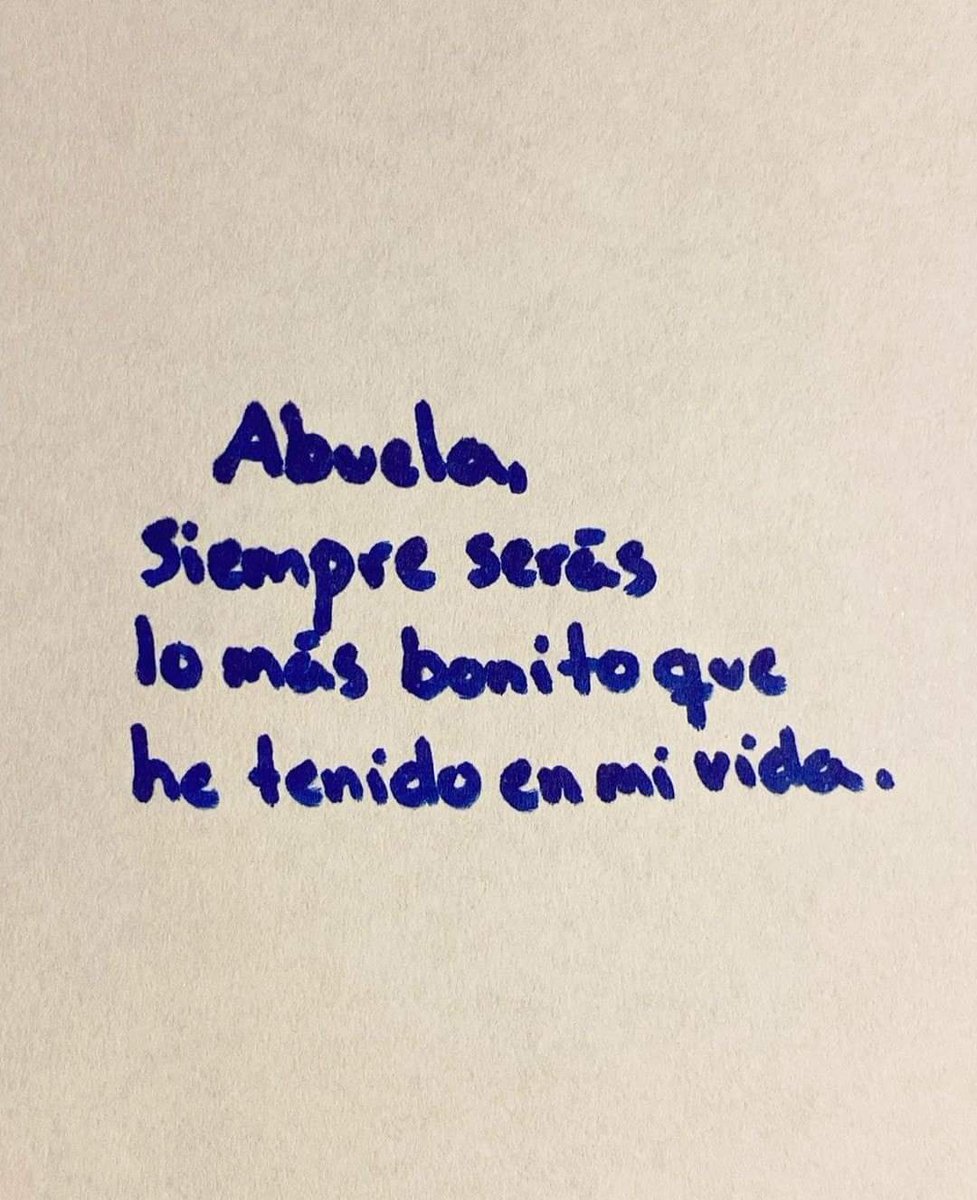 Abuela,
Siempre serás
lo más bonito que
he tenido en mi vida.